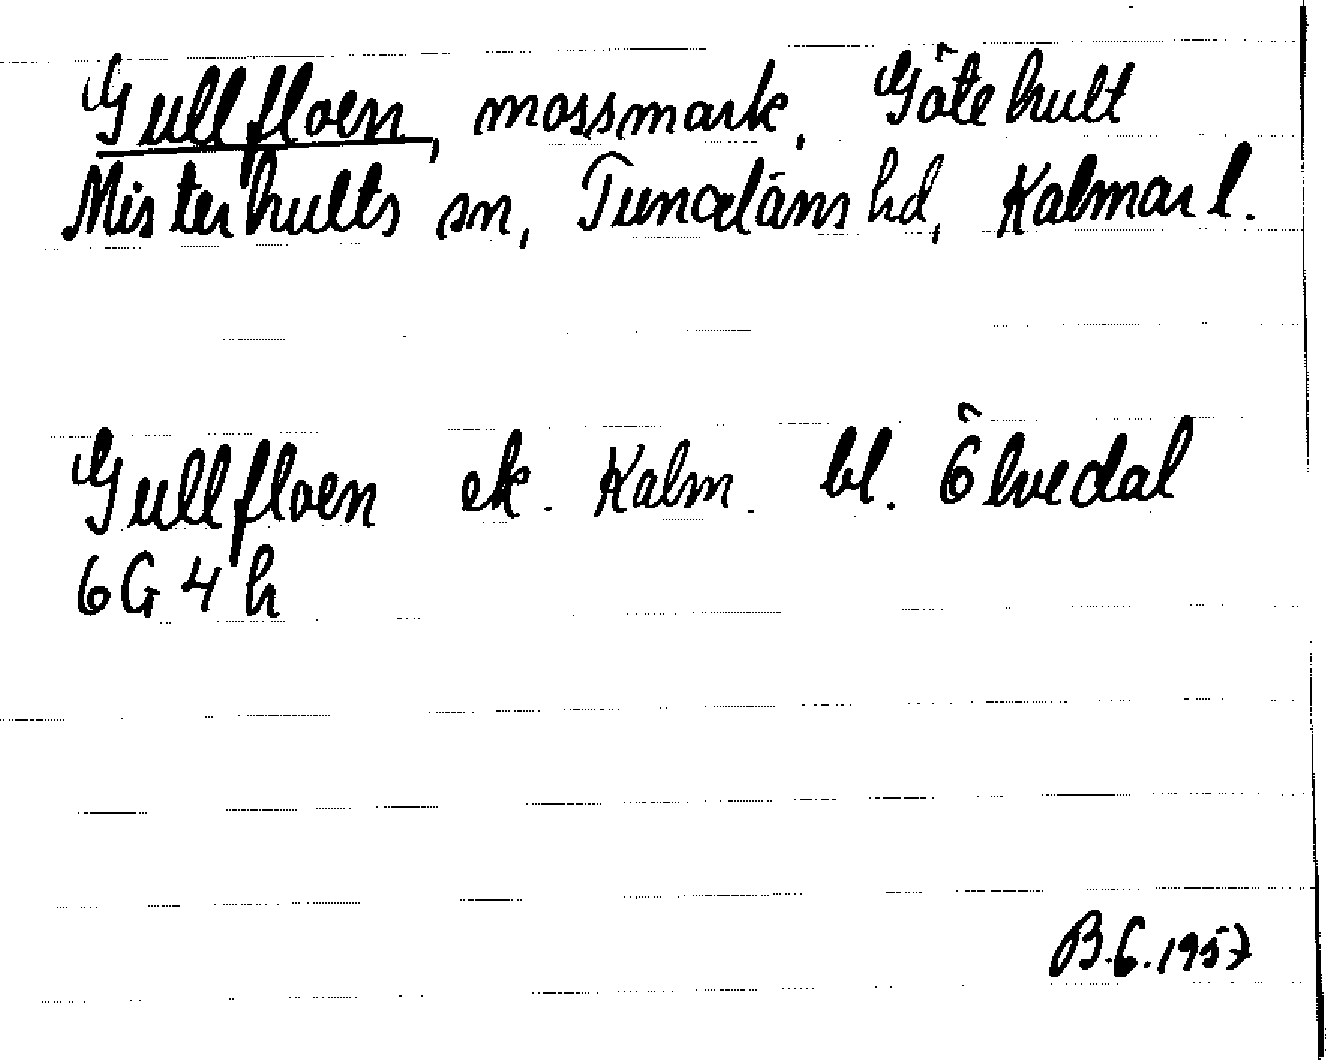 Gullfloen, mossmark, Götehult
Misterhults sn, Tunaläns hd, Kalmar l.
Gullfloen ek. Kalm. bl. Ölvedal
6G 4 h
B.G. 1957